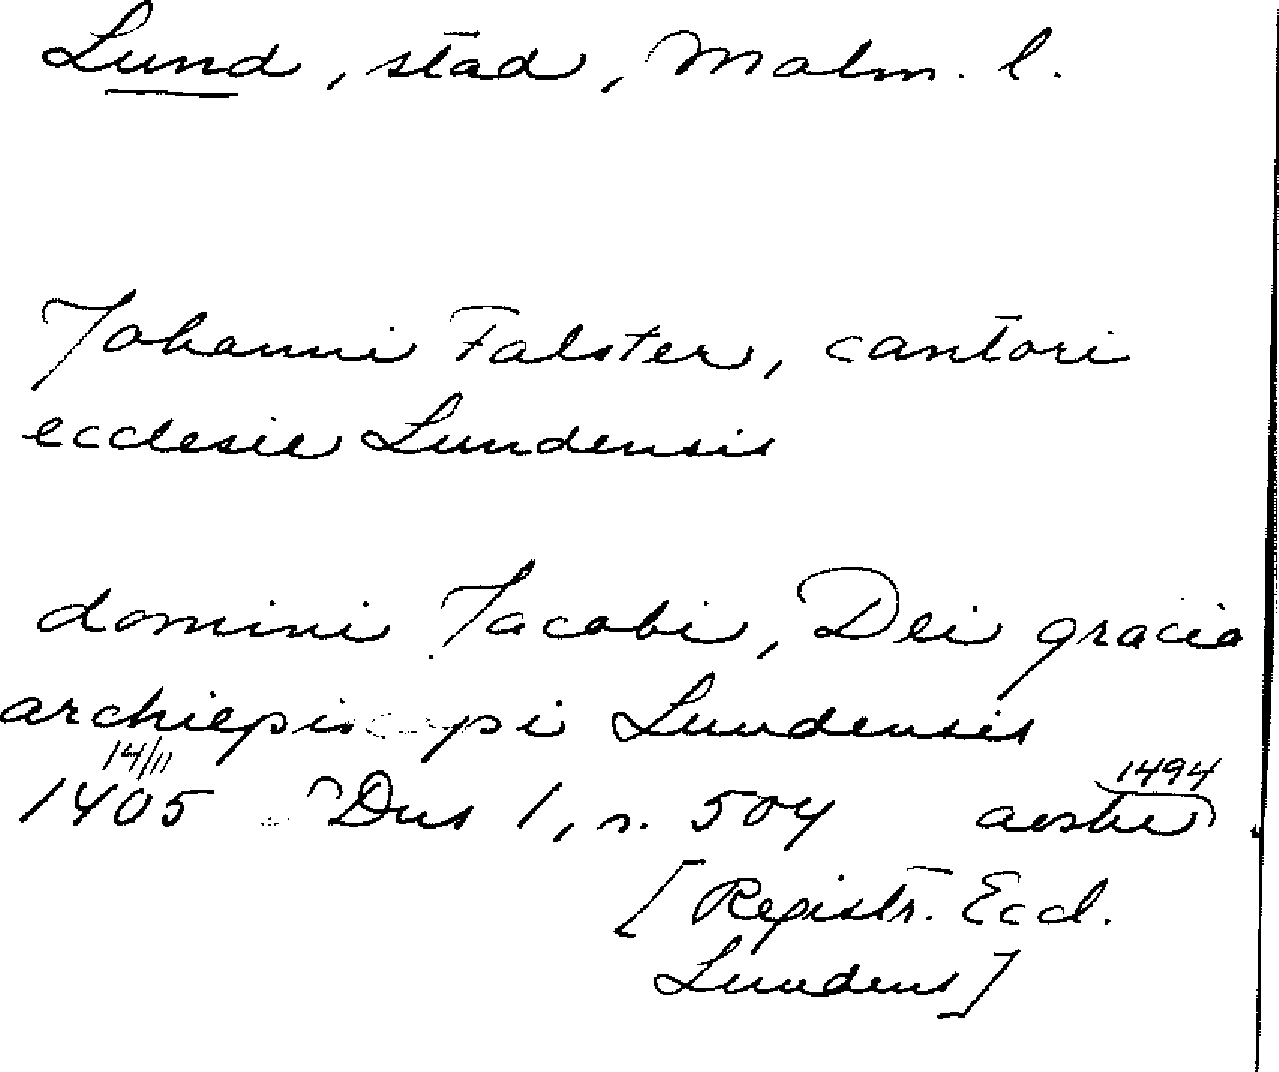 Lund, stad, Malm. l.
Johanni Falster, cantori
ecclesie Lundensis
domini Jacobi, Dei gracia
archiepiscopi Lundensis
14/11 1494
1405 Dus 1, s. 504
[Registr. Eccl.
Lundens]